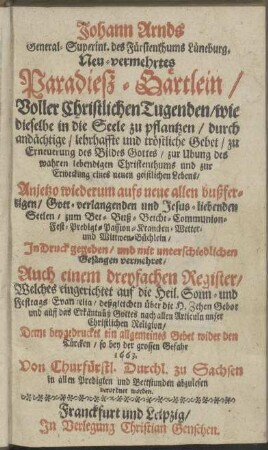 Johann Arnds
General-Superint. des Fürstenthums Lüneburg,
Neu-vermehrtes
Paradieß-Gärtlein/
Voller Christlichen Tugenden/wie
dieselbe in die Seele zu pflantzen/durch
andächtige/lehrhaffte und tröstliche Gebet/zu
Erneurung des Bildes Gottes/zur Ubung des
wahren lebendigen Christenthums und zur
Erweckung eines neuen geistlichen Lebens/
Anjetzo wiederum aufs neue allen bußfer-
tigen/Gott-verlangenden und Jesus-liebenden
Seelen/zum Bet-Buß-Beicht-Communion-
Fest-Predigt-Passion-Krancken-Wetter-
und Wittwen-Büchlein/
In Druck gegeben/und mit unterschiedlichen
Gesängen vermehret/
Auch einem dreyfachen Register/
Welches eingerichtet auf die Heil. Sonn- und
Festtags Evangelia/deßgleichen über die H. Zehen Gebot
und auff das Erkäntnüß Gottes nach allen Articuln unser
Christlichen Religion/
Deme beygedrucket ein allgemeines Gebet wider den
Türcken/so bey der grossen Gefahr
1663.
Von Churfürstl. Durchl. zu Sachsen
in allen Predigten und Betstunden abzulesen
verordnet worden.
Franckfurt und Leipzig/
In Verlegung Christian